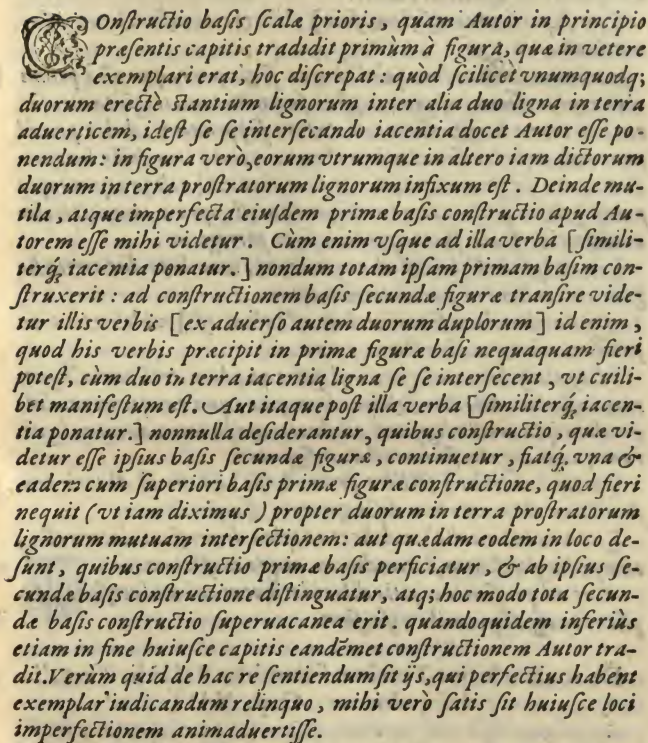 COnstructio basis scalæ prioris, quam Autor in principio
præsentis capitis tradidit primùm à figura, quæ in vetere
exemplari erat, hoc discrepat: quòd scilicèt vnumquodq;
duorum erectè stantium lignorum inter alia duo ligna in terra
aduerticem, idest se se intersecando iacentia docet Autor esse po-
nendum: in figura verò, eorum vtrumque in altero iam dictorum
duorum in terra prostratorum lignorum infixum est. Deinde mu-
tila, atque imperfecta eiusdem primæ basis constructio apud Au-
torem esse mihi videtur. Cùm enim vsque ad illa verba [simili-
terq́; iacentia ponatur.] nondum totam ipsam primam basim con-
struxerit: ad constructionem basis secundæ figuræ transire vide-
tur illis verbis [ex aduerso autem duorum duplorum] id enim,
quod his verbis præcipit in primæ figuræ basi nequaquam fieri
potest, cùm duo in terra iacentia ligna se se intersecent, vt cuili-
bet manifestum est. Aut itaque post illa verba [similiterq́; iacen-
tia ponatur.] nonnulla desiderantur, quibus constructio, quæ vi-
detur esse ipsius basis secundæ figuræ, continuetur, fiatq́; vna &
eadem cum superiori basis primæ figuræ constructione, quod fieri
nequit (vt iam diximus) propter duorum in terra prostratorum
lignorum mutuam intersectionem: aut quædam eodem in loco de-
sunt, quibus constructio primæ basis perficiatur, & ab ipsius se-
cundæ basis constructione distinguatur, atq; hoc modo tota secun-
dæ basis constructio superuacanea erit. quandoquidem inferiùs
etiam in fine huiusce capitis eandémet constructionem Autor tra-
dit. Verùm quid de hac re sentiendum sit ijs, qui perfectius habent
exemplar iudicandum relinquo, mihi verò satis sit huiusce loci
imperfectionem animaduertisse.